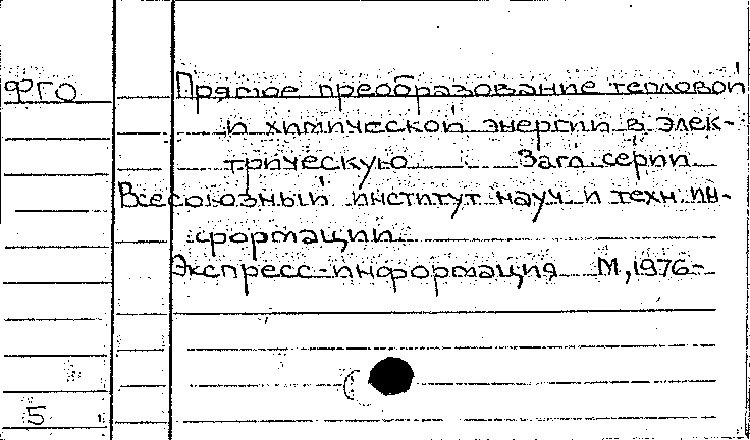 ФГО Прямое преобразование тепловой
и химической энергии в элек-
трическую Загл. серии
Всесоюзный институт науч. и техн. ин-
формации.
Экспресс-информация М, 1976-
5